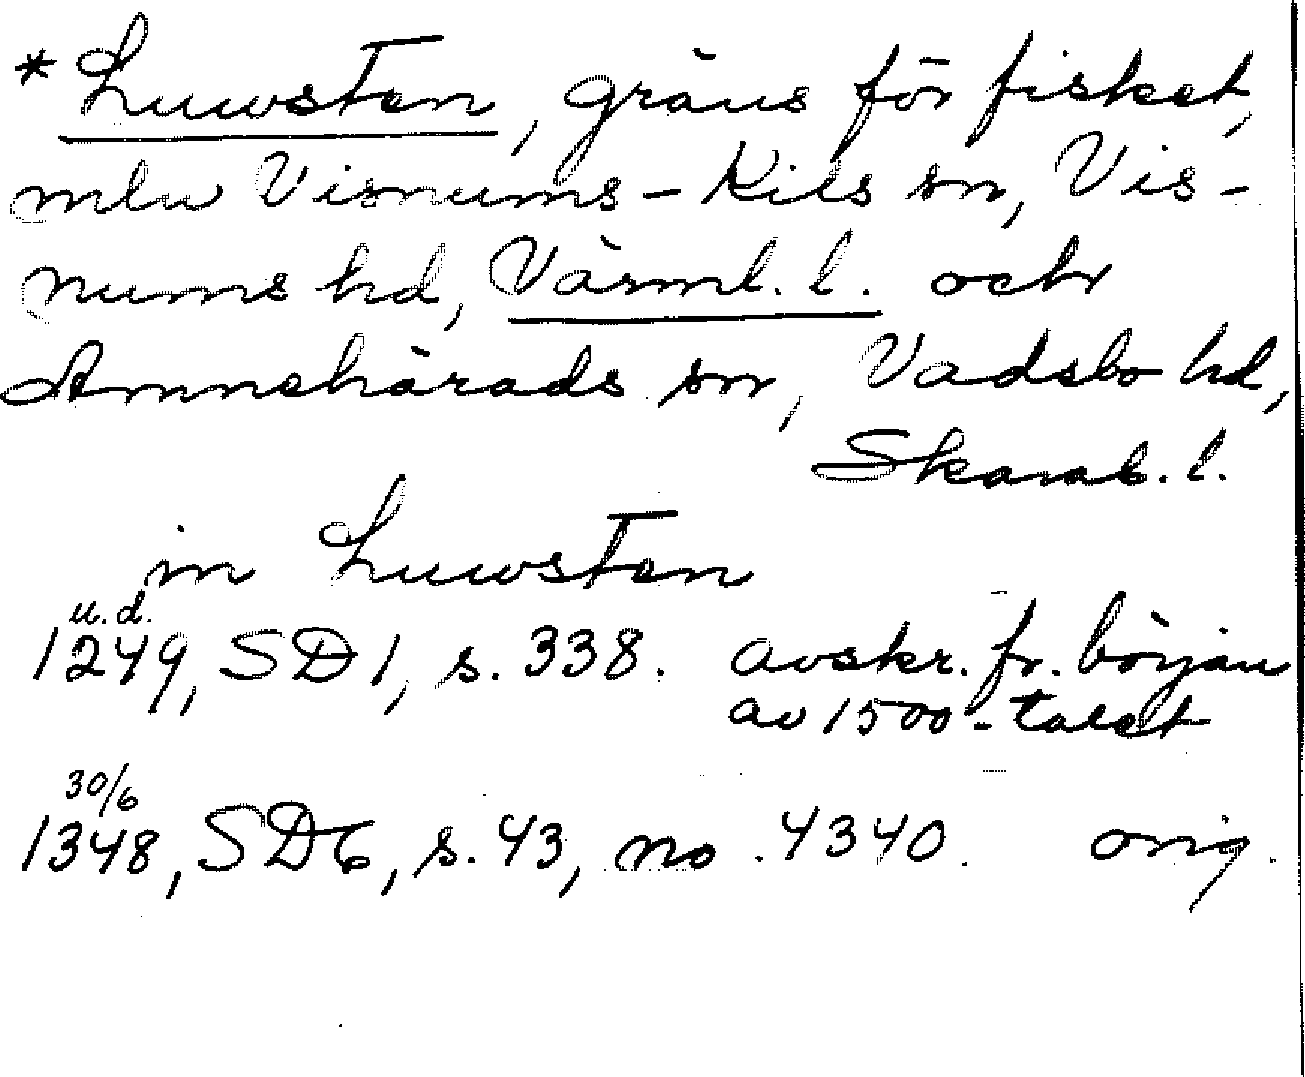 * Luwsten, gräns för fisket,
mlw Visnums-Kils sn, Vis-
nums hd, Värml. l. och
Amnehärads sn, Vadsbo hd,
Skarab. l.
in Luwsten
u.d.
1249, SD 1, s. 338. avskr. fr. början
av 1500-talet
30/6
1348, SD 6, s. 43, no. 4340. orig.